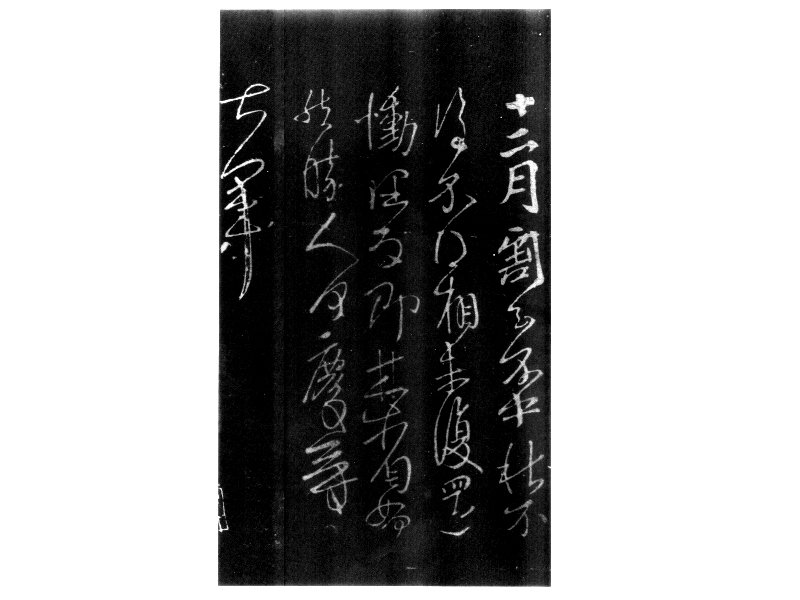 十二月割至不中秋不
復不得相未復還
慟理為即甚省如何
然勝人何慶等
大軍